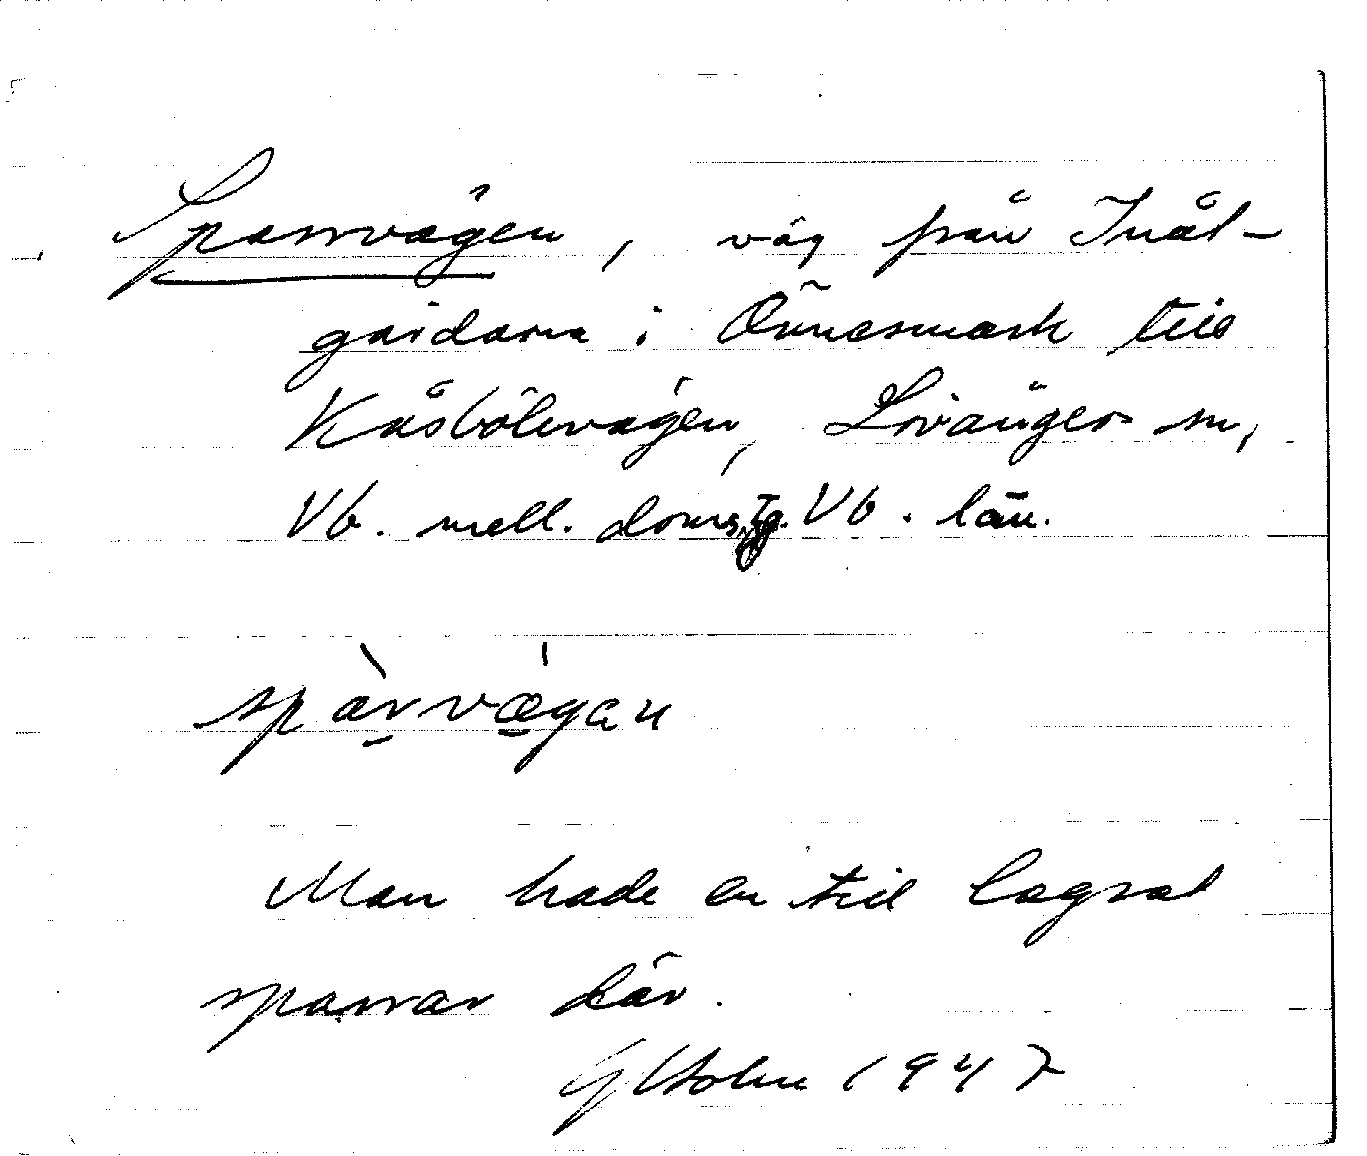 Sparrvägen, väg från Inål-
gårdarna i Önnesmark till
Kåsbölevägen, Lövånger sn,
Vb. mell. doms. tg. Vb. län.
spàrvǽgan
Man hade en tid lagrat
sparrar där.
G Holm 1947